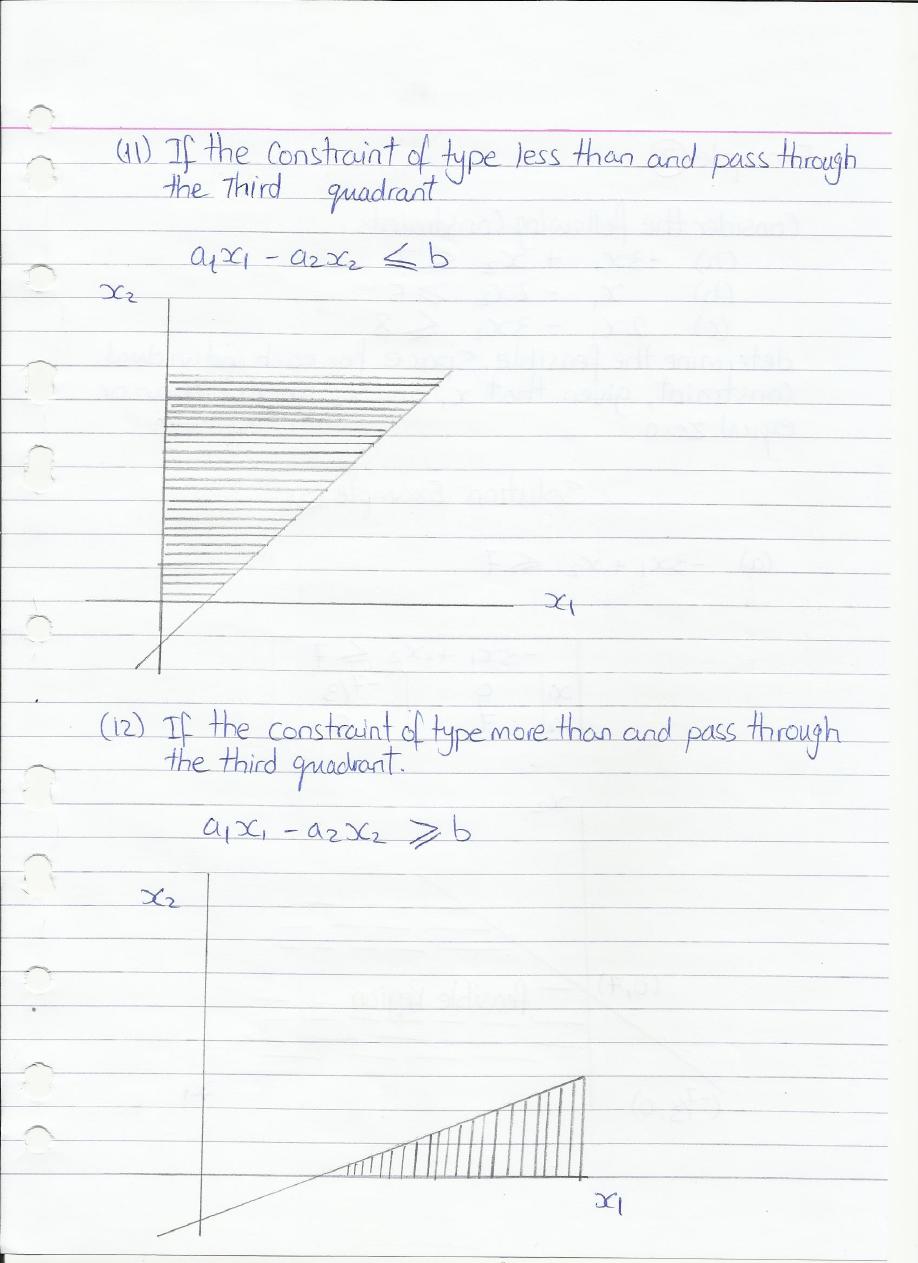 (11) If the Constraint of type less than and pass through
the Third quadrant
a₁x₁ - a₂x₂ ≤ b
x₂
x₁
(12) If the constraint of type more than and pass through
the third quadrant.
a₁x₁ - a₂x₂ ≥ b
x₂
x₁